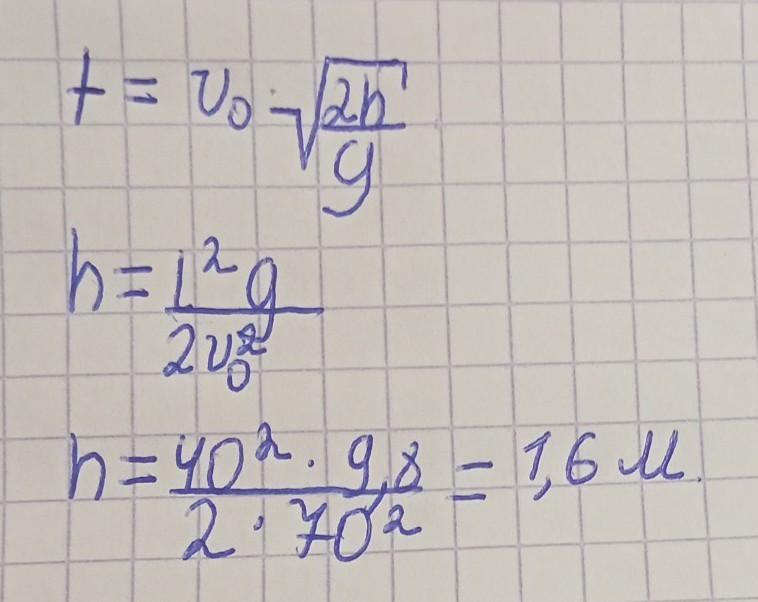 t = v₀ · √(2h/g)
h = l²g / 2v₀²
h = 40² · 9,8 / 2 · 70² = 1,6 м.